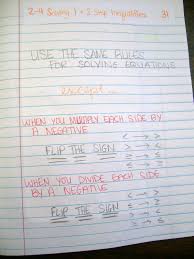 2-4 Solving 1 + 2 Step Inequalities 31
USE THE SAME RULES
FOR SOLVING EQUATIONS
except...
WHEN YOU MULTIPLY EACH SIDE BY
A NEGATIVE
FLIP THE SIGN
< → >
> → <
≤ → ≥
≥ → ≤
WHEN YOU DIVIDE EACH SIDE
BY A NEGATIVE
FLIP THE SIGN
< → >
> → <
≤ → ≥
≥ → ≤